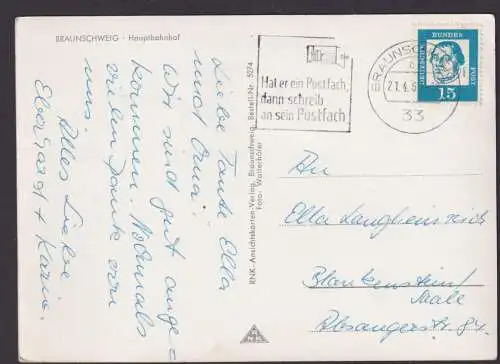 BRAUNSCHWEIG - Hauptbahnhof
Liebe Tante Ella
und Oma!
Wir sind gut ange=
kommen. Nochmals
vielen Dank von
uns.
Alles Liebe
Eberhardt + Karin.
RNK-Ansichtskarten-Verlag, Braunschweig, Bestell-Nr. 5074
Foto: Watterhöfer
Hat er ein Postfach,
dann schreib
an sein Postfach
BRAUNSCH
21.4.6
33
DEUTSCHE
BUNDES
POST
15
An
Ella Langheinrich
Blankenstein/
Saale
Absangerstr. 84.